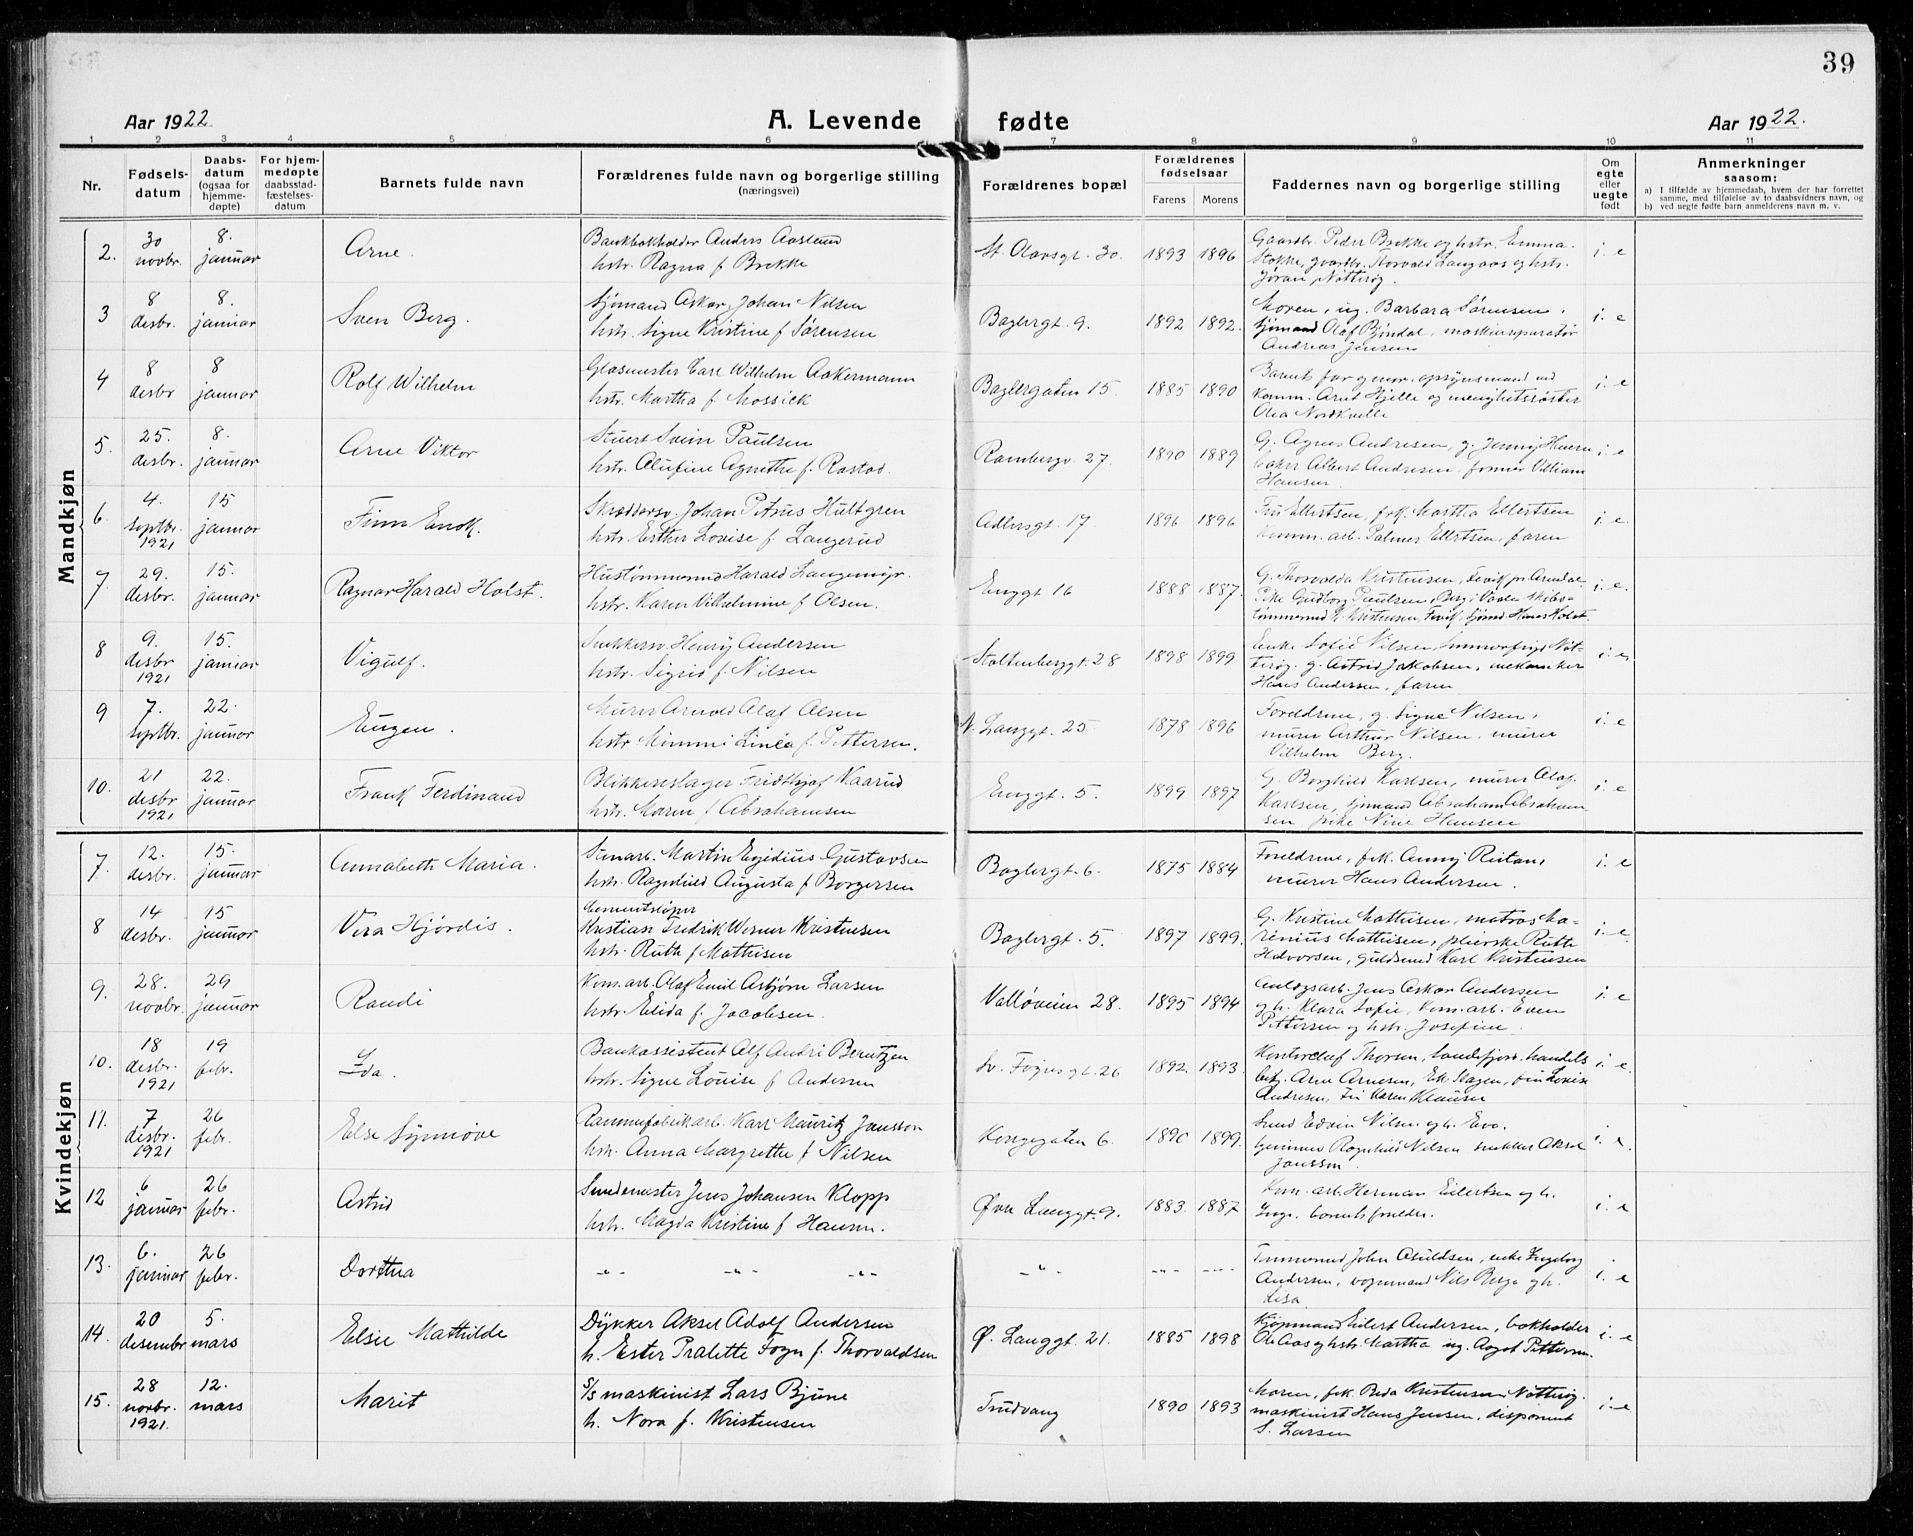 39
Aar 1922
A. Levende
fødte
Aar 1922.
1 2 3 4 5 6 7 8 9 10 11
Nr.
Fødsels-
datum
Daabs-
datum
(ogsaa for
hjemme-
døpte)
For hjem-
medøpte
daabsstad-
fæstelses-
datum
Barnets fulde navn
Forældrenes fulde navn og borgerlige stilling
(næringsvei)
Forældrenes bopæl
Forældrenes
fødselsaar
Farens Morens
Faddernes navn og borgerlige stilling
Om
egte
eller
uegte
født
Anmerkninger
saasom:
a) I tilfælde av hjemmedaab, hvem der har forrettet
samme, med tilføielse av to daabsvidners navn, og
b) ved uegte fødte barn anmelderens navn m. v.
Mandkjøn
2. 30 novbr. 8. januar Arne.
Bankbokholder Anders Aaslund
hstr. Ragna f. Brekke
St. Olavsgt. 30. 1893 1896
Gaardbr. Peder Brekke og hstr. Emma
Stokke, gaardbr. Torvald Langaas og hstr.
Jøran, Nøtterøy.
i. e
3 8 desbr. 8. januar Sven Berg.
Sjømand Oskar Johan Nilsen
hstr. Signe Kristine f Sørensen
Baglergt. 9. 1892 1892.
Moren, ug. Barbara Sørensen,
sjømand Olaf Bjøndal, maskinreparatør
Andreas Jensen
i. e
4 8 desbr 8 januar Rolf Wilhelm
Glasmester Carl Wilhelm Ackermann
hstr. Martha f. Mossiek
Baglergaten 15. 1885 1890
Barnets far og mor, opsynsmand ved
komm. Arnt Hjelle og menighetssøster
Olea Nordkvelle
i. e
5. 25. desbr. 8. januar Arne Viktor
Stuert Svein Paulsen
hstr. Olufine Agnethe f. Rastad.
Rambergv. 27. 1890 1889
G. Agnes Andresen, g. Jenny
baker Albert Andresen, former Villiam
Hansen
i. e
6 4. septbr. 1921 15 januar Finn Enok.
Skræddersv. Johan Petrus Hultgren
hstr. Esther Lovise f Langerud
Adlersgt. 17 1896 1896
Fru Ellertsen, frk. Martha Ellertsen
Komm. arb. Palmer Ellertsen, faren
i. e.
7. 29. desbr. 15. januar Ragnar Harald Holst.
Hustømmermd Harald Langemyr.
hstr. Karen Vilhelmine f Olsen.
Enggt 16 1888 1887.
G. Thorvalda Kristensen, Fevik pr Arendal
Pike Gudborg Paulsen, Berg i Vaale skibs-
tømmermd K. Kristensen, Fevik, sjømd Hans Holst.
i. e.
8 9. desbr 1921 15. januar Vigulf.
Snekkersv. Henry Andersen
hstr. Sigrid f. Nilsen
Stoltenberggt. 28 1898 1899
Enke Sofie Nilsen, Nøt-
terøy. g. Astrid Jakobsen, mekaniker
Hans Andersen, faren
i. e.
9 7. septbr. 22. januar Eugen.
Murer Arnold Olaf Olsen
hstr Mimmi Linéa f. Pettersen.
N. Langgt. 25 1878 1896
Foreldrene, g. Signe Nilsen,
murer Arthur Nilsen, murer
Vilhelm Berg.
i. e
10. 21 desbr 1921 22. januar Frank Ferdinand
Blikkenslager Fridthjof Naarud
hstr. Maren f Abrahamsen
Enggt. 5. 1899 1897
G. Borghild Karlsen, murer Olaf
Karlsen, sjømand Abraham Abraham-
sen, pike Nine Hansen
i. e
Kvindekjøn
7. 12. desbr. 15. januar Annabeth Maria.
Stenarb. Martin Egidius Gustavsen
hstr. Ragnhild Augusta f Borgersen
Baglergt. 6. 1875 1884
Foreldrene, frk. Anny Ristan,
murer Hans Andersen.
i. e
8 14 desbr. 15 januar Vera Hjørdis.
Cementstøper
Kristian Fredrik Werner Kristensen
hstr. Ruth f Mathisen
Baglergt. 5. 1897 1899.
G. Kristine Mathisen, matros Ma-
renius Mathisen, pleierske Ruth
Halvorsen, guldsmed Karl Kristensen
i. e.
9. 28. novbr. 29 januar Randi
Kom. arb. Olaf Emil Asbjørn Larsen
hstr. Elida f. Jacobsen.
Valløveien 28. 1895 1894
Anlægsarb. Jens Oskar Andersen
og h. Klara Sofie, kom. arb. Even
Pettersen og hstr. Josefine.
i. e
10. 18 desbr. 1921 19 febr. Ida.
Bankassistent Alf André Berntzen
hstr. Signe Louise f Andersen
Sv. Foynsgt. 26 1892. 1893.
Kontorchef Thorsen, Sandefjord. handels
bet. Arne Arnesen, Ek Slagen, frk Lovise
Andresen, Frk Karen Klausen
i. e.
11. 7 desbr. 1921 26 febr. Else Synnøve
Rammefabrikarb. Karl Mauritz Jansson
hstr. Anna Margrethe f Nilsen
Kongegaten 6. 1890 1899.
Smed Edvin Nilsen og h. Eva.
Ragnhild Nilsen snekker Aksel
Jansson.
i. e.
12 6 januar 26 febr. Astrid
Smedemester Jens Johansen Klopp
hstr. Magda Kristine f Hansen.
Øvre Langgt. 9. 1883. 1887
Kom. arb. Herman Eilertsen og h.
Inga, barnets foreldre.
i. e
13. 6. januar 26 febr. Dorthea
-„- -„- -„-
-„- -„- -„-
Tømmermd John Asuldsen, enke Ingeborg
Andersen, vognmand Nils Berge og h.
Lisa
i. e
14. 20 desember 5. mars Elsie Mathilde
Dykker Aksel Adolf Andersen
h. Ester Pralette Fogn f. Thorvaldsen
Ø. Langgt. 21. 1885 1898
Kjøpmand Eilert Andersen, bokholder
Ole Aas og hstr. Martha ug. Aagot Pettersen.
i. e
15. 28 novbr. 1921. 12. mars Marit
S/S maskinist Lars Bjune
h. Nora f. Kristensen
Trudvang 1890 1893
Maren, frk. Beda Kristensen Nøtterøy.
maskinist Hans Jensen, disponent
S. Larsen
i. e